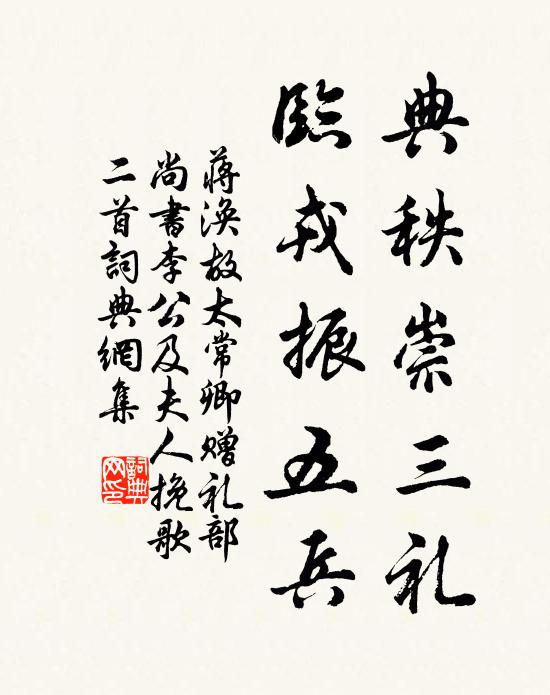 典秩崇三礼
臨戎振五兵
蒋渙故太常卿赠礼部
尚書李公及夫人挽歌
二首詞典網集
詞典
网印